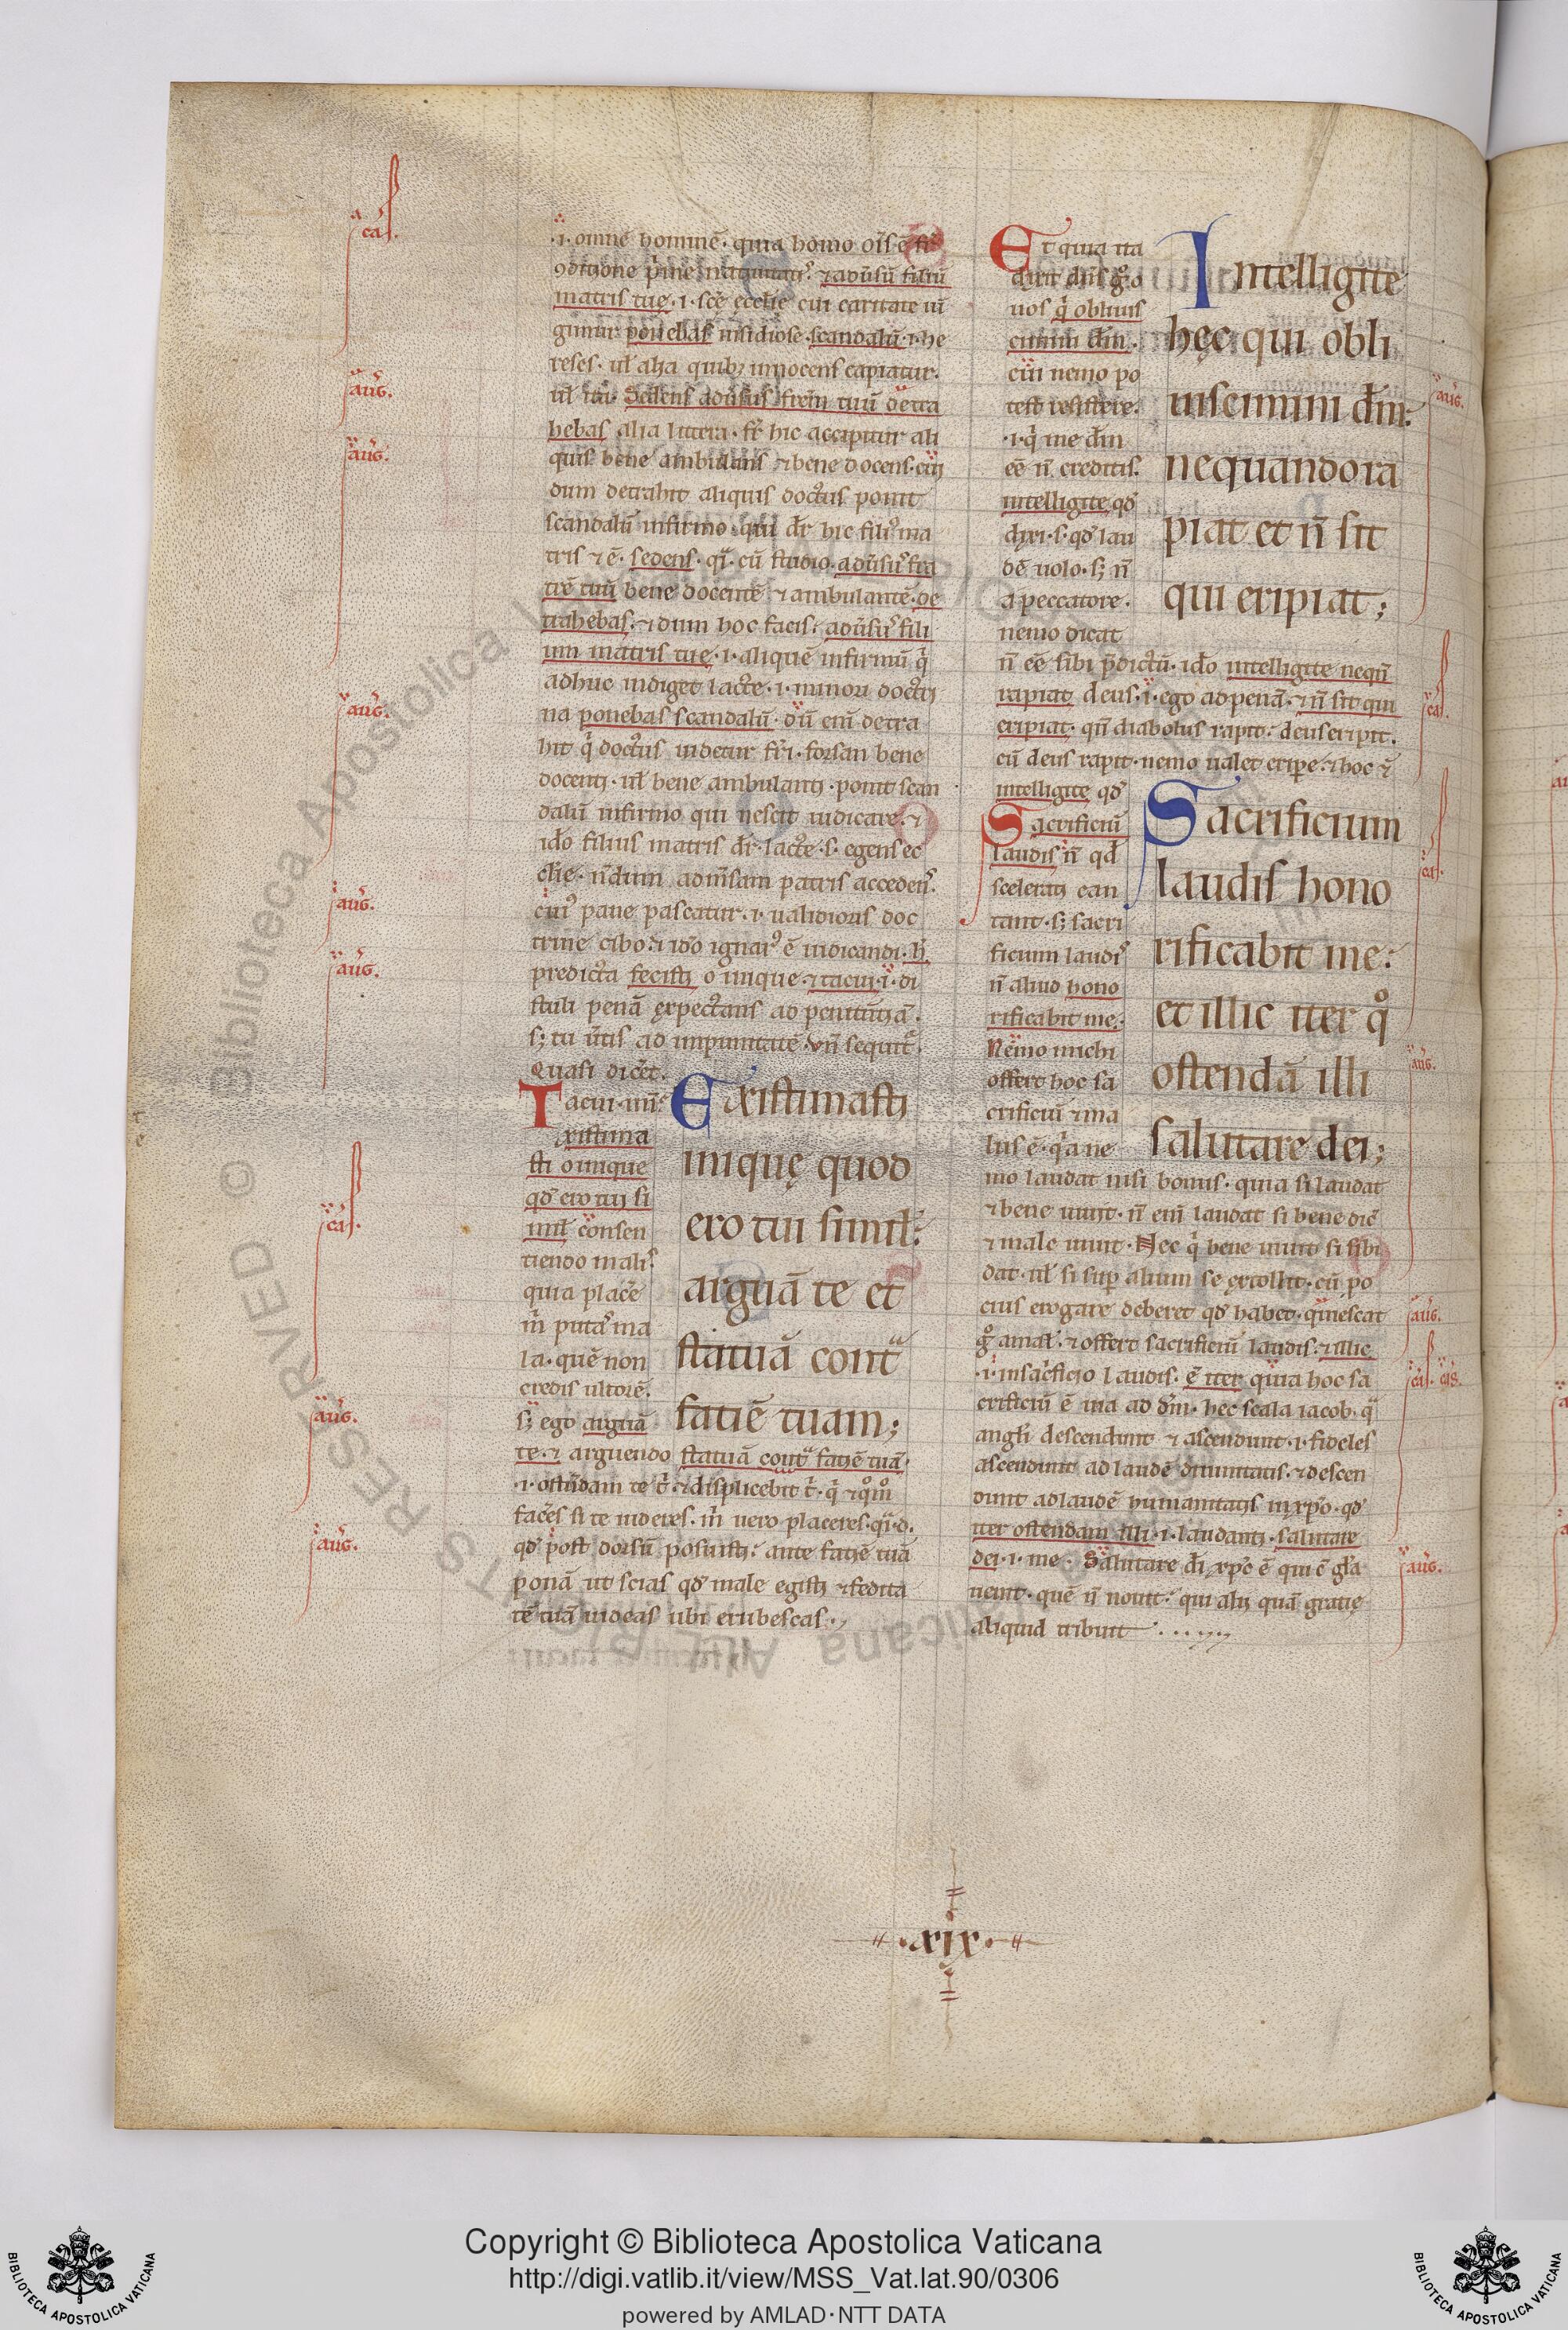 ·i· omnē hominē· quia homo oīs ē fr̄
ↄditione p̄me natiuitatis᷒ ⁊ adūsū filiū
matris tuę· i· scē ęcclīe cui caritate iū
guntur ponebas insidiose scandalū· i· he
reses· ul̄ alia quibꝫ innocens capiatur·
ul̄ ita· Sedens adūsus frēm tuū detra
hebas alia littera· fr̄ hic accipitur ali
quis bene ambulans ⁊ bene docens· cui
dum detrahit aliquis doctus ponit
scandalū infirmo· qui dr̄ hic filiꝰ ma
tris ⁊ ē· sedens· qi· cū studio· adūsuꝰ fra
trē tuū bene docentē ⁊ ambulantē· de
trahebas· ⁊ dum hoc facis· adūsuꝰ fili
um matris tuę· i· aliquē infirmū q̄
adhuc indiget lacte· i· minori doctri
na ponebas scandalū· dū eni detra
hit q̄ doctus uidetur fr̄i· forsan bene
docenti· ul̄ bene ambulanti· ponit scan
dalū infirmo qui nescit iudicare· ⁊
ido filius matris dr̄· lacte· s· egens ec
clīę· n̄dum ad mēsam patris accedens᷒
cuiꝰ pane pascatur· i· ualidioris doc
trine cibo di ido ignarꝰ ē iudicandi· h̄
predicta fecisti o inique ⁊ tacui· i· di
stuli penā expectans ad penitētiā·
sꝫ tu ūtis ad impunitatē· Vn̄ sequitᷣ
Quasi dicēt·
Tacui· in̄
existima
sti o inique
qđ ero tui si
mil̄ consen
tiendo malis᷒
quia placē
m̄ putas᷒ ma
la· quē non
credis ultorē·
sꝫ ego arguā
te· ⁊ arguendo statuā contͣ faciē tuā·
·i· ostēdam te t̄· ⁊ displicebit t̄· q̄ ⁊ qͦmͦ
facēs si te uideres· m̄ uero placeres· qi· d·
qđ post dorsū posuisti· ante faciē tuā
ponā ut scias qđ male egisti ⁊ fedita
tē tuā uideas ubi erubescas·
Existimasti
iniquę quod
ero tui simil̄·
arguā te et
statuā contͣ
fatiē tuam;
Et quia ita
dixit dn̄s gͦ o
uos q̄ obliuis
cimini dm̄·
cui nemo po
test resistere·
·i· q̄ me dm̄
eē n̄ creditis·
intelligite qđ
dixi· s· qđ lau
dē uolo· sꝫ n̄
a peccatore·
nemo dicat
n̄ eē sibi p̄dictū· ido intelligite neqn̄
rapiat deus· i· ego ad penā· ⁊ n̄ sit qui
eripiat· qn̄ diabolus rapit· deus eripit·
cū deus rapit· nemo ualet eripe· ⁊ hoc ē
intelligite qđ
Intelligite
hęc qui obli
uiscimini dm̄·
nequando ra
piat et n̄ sit
qui eripiat;
Sacrificiū
laudis n̄ qđ
scelerati can
tant· sꝫ sacri
ficium laudis᷒
n̄ aliud hono
rificabit me·
Nemo michi
offert hoc sa
crificiū ⁊ ma
lus ē· qͣa ne
mo laudat nisi bonus· quia si laudat
⁊ bene uiuit· n̄ eni laudat si bene dic̄
⁊ male uiuit· Nec q̄ bene uiuit si sibi
dat· ul̄ si sup alium se extollit· cū po
cius erogare deberet qđ habet· quiescat
gͦ amar̄· ⁊ offert sacrificiū laudis· ⁊ illic
·i· in sacficio laudis· ē iter quia hoc sa
crificiū ē uia ad dm̄· hec scala iacob· qͣ
angli descendunt ⁊ ascendunt· i· fideles
ascendunt ad laudē diuinitatis· ⁊ descen
dunt ad laudē humanitatis in xp̄o· qđ
iter ostendam illi· i· laudanti· salutare
dei· i· me· Salutare di xp̄c ē qui ē gl̄a
uenit· quē n̄ nouit· qui alij quā gratię
aliquid tribuit
Sacrificium
laudis hono
rificabit me·
et illic iter qͦ
ostendā illi
salutare dei;
·xix·
cas·
aug·
aug·
aug·
aug·
aug·
cas·
aug·
aug·
aug·
cas·
cas·
aug·
aug·
cas· gls·
aug·
© Biblioteca Apostolica Vaticana ALL RIGHTS RESERVED
Copyright © Biblioteca Apostolica Vaticana
http://digi.vatlib.it/view/MSS_Vat.lat.90/0306
powered by AMLAD·NTT DATA
BIBLIOTECA APOSTOLICA VATICANA
BIBLIOTECA APOSTOLICA VATICANA